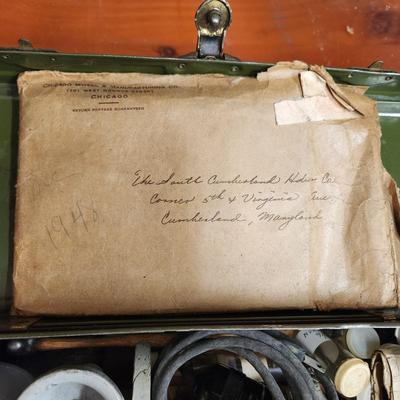 CHICAGO WHEEL & MANUFACTURING CO.
1101 WEST MONROE STREET
CHICAGO
RETURN POSTAGE GUARANTEED
The South Cumberland Hdw Co
Corner 5th & Virginia Ave
Cumberland, Maryland
1948